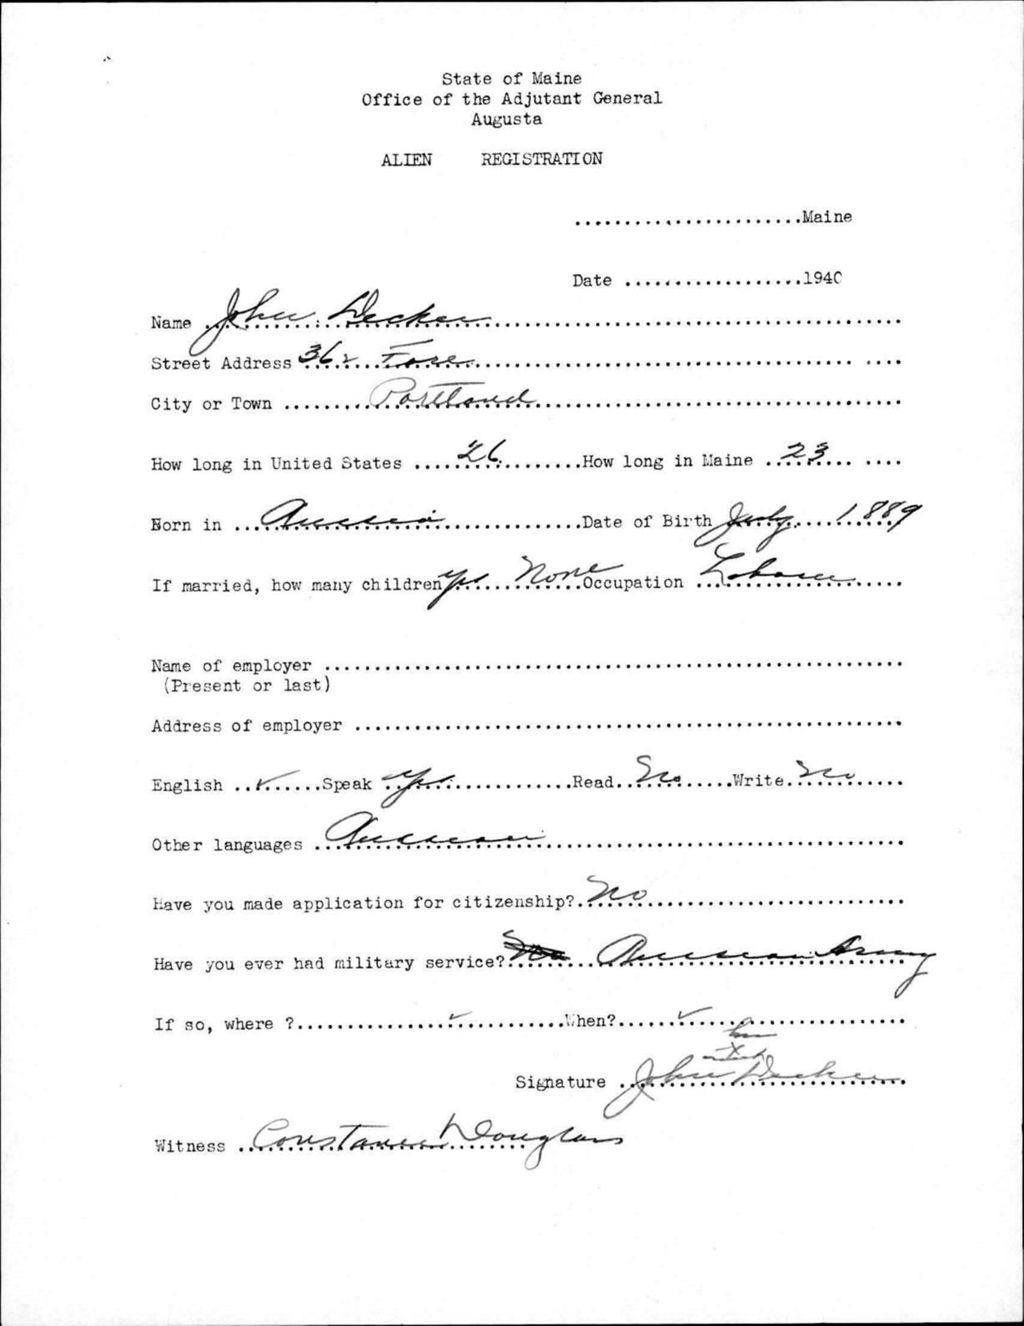 State of Maine
Office of the Adjutant General
Augusta
ALIEN REGISTRATION
.......................Maine
Date ..................1940
Name John Decker
Street Address 362 Fore
City or Town Portland
How long in United States 26 How long in Maine 23
Born in Russia Date of Birth July 1889
If married, how many children yes None Occupation Laborer
Name of employer
(Present or last)
Address of employer
English ✓ Speak Yes Read No Write No
Other languages Russian
Have you made application for citizenship? No
Have you ever had military service? No Russian Army
If so, where ? ✓ When? ✓
his
x
mark
Signature John Decker
Witness Constance Douglass